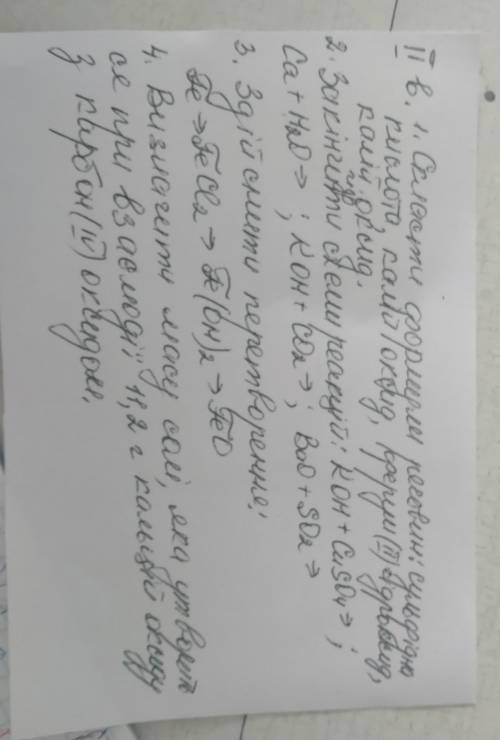 II в. 1. Скласти формули речовин: сульфідна
кислота, калій оксид, ферум (II) сульфід,
калій гідроксид.
2. Закінчити схеми реакцій: KOH + CuSO4 → ;
Ca + H2O → ; KOH + CO2 → ; BaO + SO2 →
3. Здійснити перетворення:
Fe → FeCl2 → Fe(OH)2 → FeO
4. Визначити масу солі, яка утворить
ся при взаємодії 11,2 г кальцій оксиду
з карбон (IV) оксидом.